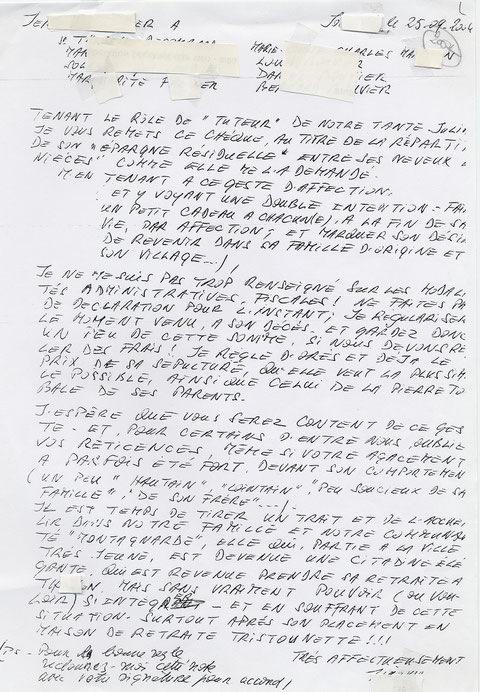 JE ER A LE 25.09.2004
MAR MARIE- CHARLES MA N
SOL LOU
MAR RITÉ P ER BE VIER
TENANT LE RÔLE DE "TUTEUR" DE NOTRE TANTE
JE VOUS REMETS CE CHÈQUE, AU TITRE DE LA RÉPARTI
DE SON "EPARGNE RÉSIDUELLE" ENTRE SES NEVEUX
NIÈCES" COMME ELLE ME L'A DEMANDÉ.
M'EN TENANT A CE GESTE D'AFFECTION.
ET Y VOYANT UNE DOUBLE INTENTION - FAI
UN PETIT CADEAU A CHACUN(E), A LA FIN DE SA
VIE, PAR AFFECTION; ET MARQUER SON DÉSI
DE REVENIR DANS SA FAMILLE D'ORIGINE ET
SON VILLAGE...)
JE NE ME SUIS PAS TROP RENSEIGNÉ SUR LES MODALI
TÉS ADMINISTRATIVES, FISCALES! NE FAITES PA
DE DECLARATION POUR L'INSTANT; JE REGULARISE
LE MOMENT VENU, A SON DÉCÈS. ET GARDEZ DONC
UN PEU DE CETTE SOMME, SI NOUS DEVONS RE
LER DES FRAIS! JE REGLE D'ORES ET DEJA LE
PRIX DE SA SEPUTURE, QU'ELLE VEUT LA PLUS SIM
LE POSSIBLE, AINSI QUE CELUI DE LA PIERRE TO
BALE DE SES PARENTS.
J'ESPÈRE QUE VOUS SEREZ CONTENT DE CE GES
TE - ET, POUR CERTAINS D'ENTRE NOUS, OUBLIE
VOS RETICENCES, MÊME SI VOTRE AGACEMENT
A PARFOIS ÉTÉ FORT, DEVANT SON COMPORTEMEN
(UN PEU "HAUTAIN", "LOINTAIN", "PEU SOUCIEUX DE SA
FAMILLE", "DE SON FRÈRE"...)
IL EST TEMPS DE TIRER UN TRAIT ET DE L'ACCUEI
LIR DANS NOTRE FAMILLE ET NOTRE COMMUNAU
TÉ "MONTAGNARDE", ELLE QUI, PARTIE A LA VILLE
TRÈS JEUNE, EST DEVENUE UNE CITADINE ÉLÉ
GANTE, QUI EST REVENUE PRENDRE SA RETRAITE A
T ON, MAIS SANS VRAIMENT POUVOIR (OU VOU
LOIR) S'INTÉGR - ET EN SOUFFRANT DE CETTE
SITUATION. SURTOUT APRÈS SON PLACEMENT EN
MAISON DE RETRAITE TRISTOUNETTE!!!
PS - Pour la bonne règle TRÈS AFFECTUEUSEMENT
redonnez-moi cette note
avec votre signature pour accord!